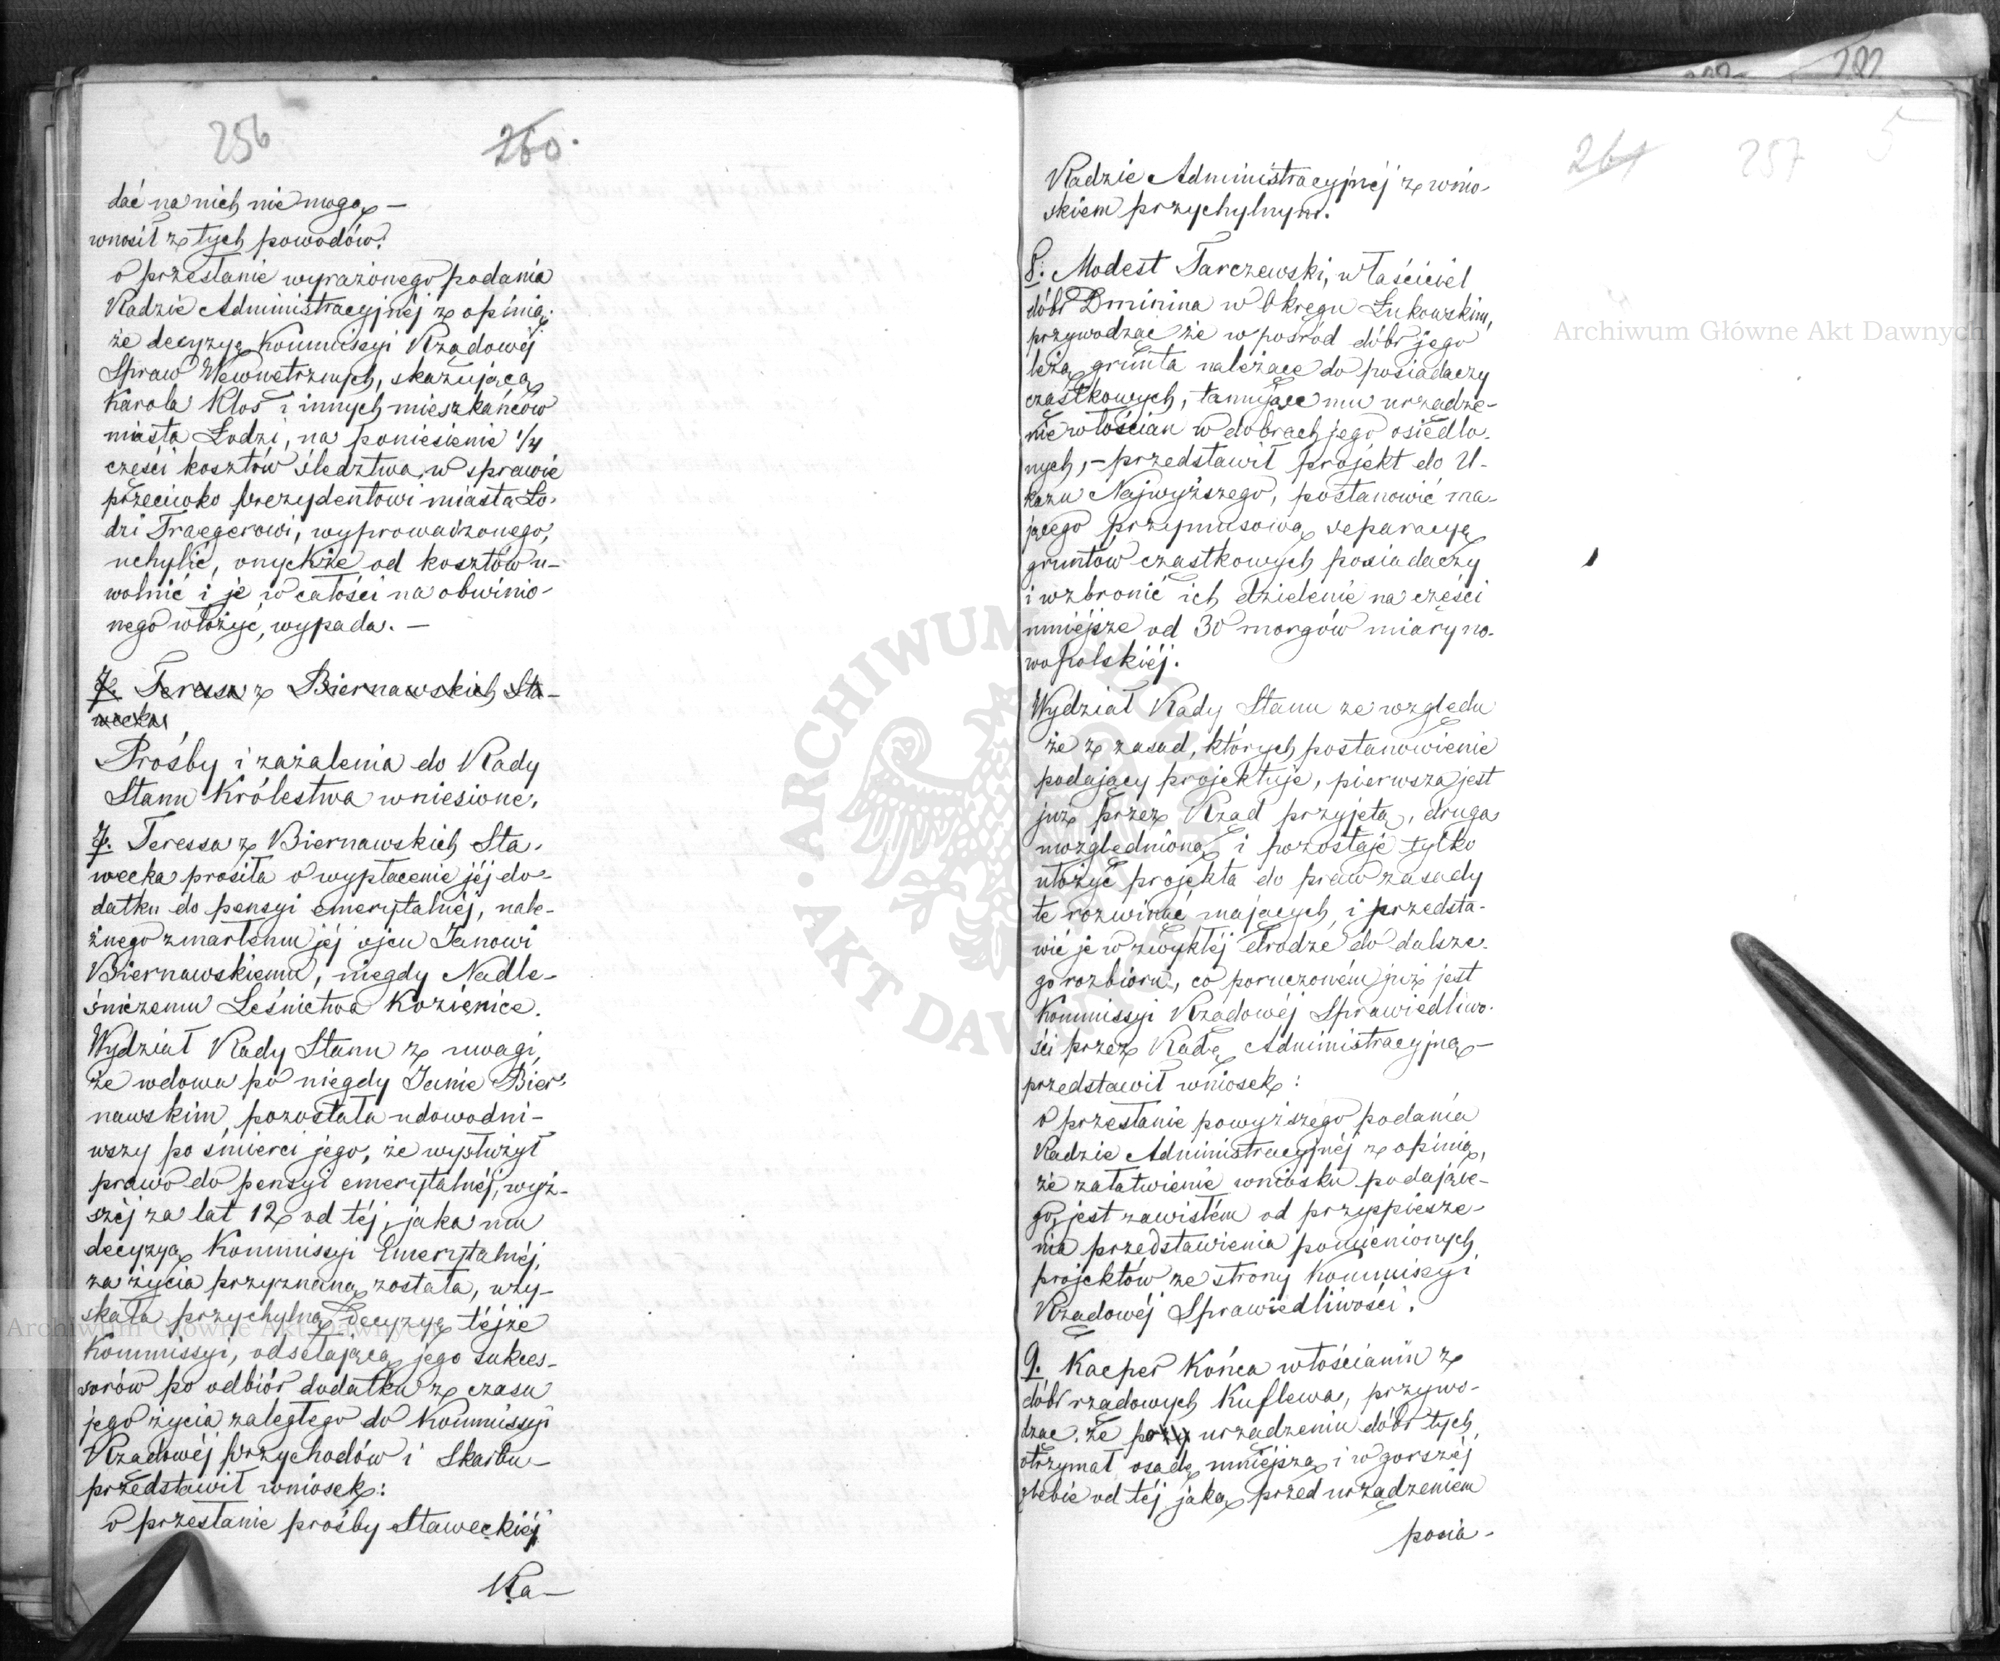 256
260.
dać na nich nie mogą, —
wnosił z tych powodów:
o przesłanie wyrażonego podania
Radzie Administracyjnéj z opinią,
że decyzyę Kommissyi Rządowéj
Spraw Wewnętrznych, skazującą
Karola Kloś i innych mieszkańców
miasta Łodzi, na poniesienie 1/4
części kosztów śledztwa, w sprawie
przeciwko prezydentowi miasta Ło-
dzi Traegerowi, wyprowadzonego,
uchylić, onychże od kosztów u-
wolnić i je w całości na obwinio-
nego włożyć, wypada. —
7. Teressa z Biernawskich Sta-
wecka,
Prośby i zażalenia do Rady
Stanu Królestwa wniesione.
7. Teressa z Biernawskich Sta-
wecka prosiła o wypłacenie jéj do-
datku do pensyi emerytalnéj, nale-
żnego zmarłemu jéj ojcu Janowi
Biernawskiemu, niegdy Nadle-
śniczemu Leśnictwa Kozienice.
Wydział Rady Stanu z uwagi,
że wdowa po niegdy Janie Bier-
nawskim, pozostała udowodni-
wszy po śmierci jego, że wysłużył
prawo do pensyi emerytalnéj, wyż-
széj za lat 12, od téj, jaka mu
decyzyą Kommissyi Emerytalnéj,
za życia przyznaną została, uzy-
skała przychylną decyzyę téjże
Kommissyi, odsełającą jego sukces-
sorów po odbiór dodatku z czasu
jego życia zaległego do Kommissyi
Rządowéj Przychodów i Skarbu —
przedstawił wniosek:
o przesłanie prośby Staweckiéj
Ra—
202
261
257
5
Radzie Administracyjnéj z wnio-
skiem przychylnym.
8. Modest Tarczewski, właściciel
dóbr Dminina w Okręgu Łukowskim,
przywodząc że w pośród dóbr jego
leżą grunta należące do posiadaczy
cząstkowych, tamujące mu urządze-
nie włościan w dobrach jego osiedlo-
nych, — przedstawił projekt do U-
kazu Najwyższego, postanowić ma-
jącego przymusową separacyę
gruntów cząstkowych posiadaczy
i wzbronić ich dzielenie na części
mniejsze od 30 morgów miary no-
wopolskiéj.
Wydział Rady Stanu ze względu
że z zasad, których postanowienie
podający projektuje, pierwsza jest
już przez Rząd przyjętą, druga
uwzględnioną i pozostaje tylko
ułożyć projekta do praw zasady
te rozwinąć mających, i przedsta-
wić je w zwykłéj drodze do dalsze-
go rozbioru, co poruczoném już jest
Kommissyi Rządowéj Sprawiedliwo-
ści przez Radę Administracyjną —
przedstawił wniosek:
o przesłanie powyższego podania
Radzie Administracyjnéj z opinią,
że załatwienie wniosku podające-
go, jest zawisłem od przyspiesze-
nia przedstawienia pomienionych
projektów ze strony Kommissyi
Rządowéj Sprawiedliwości.
9. Kacper Końca włościanin z
dóbr rządowych Kuflewa, przywo-
dząc, że przy urządzeniu dóbr tych,
otrzymał osadę mniejszą i w gorszéj
glebie od téj jaką przed urządzeniem
posia-
Archiwum Główne Akt Dawnych
Archiwum Główne Akt Dawnych
ARCHIWUM GŁÓWNE · AKT DAWNYCH ·